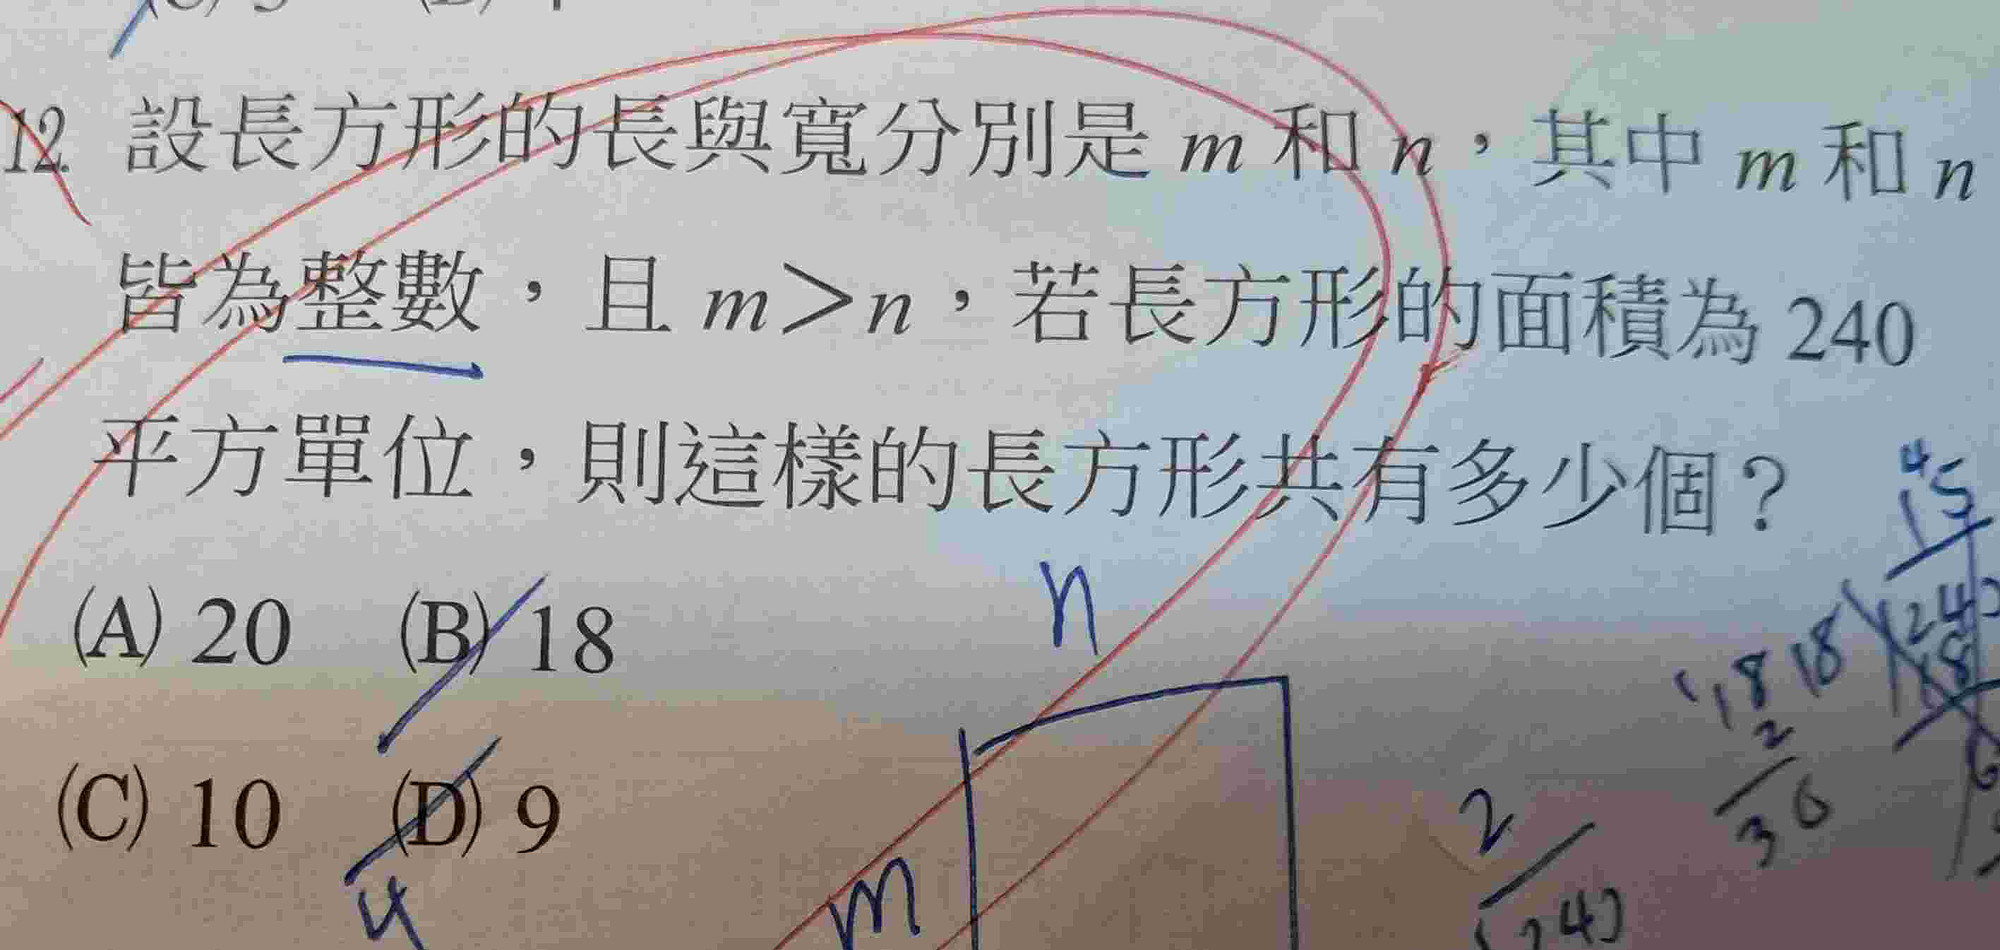 12. 設長方形的長與寬分別是 m 和 n，其中 m 和 n
皆為整數，且 m＞n，若長方形的面積為 240
平方單位，則這樣的長方形共有多少個？
(A) 20 (B) 18
(C) 10 (D) 9
n
m
4
15
18 18
2
36
2